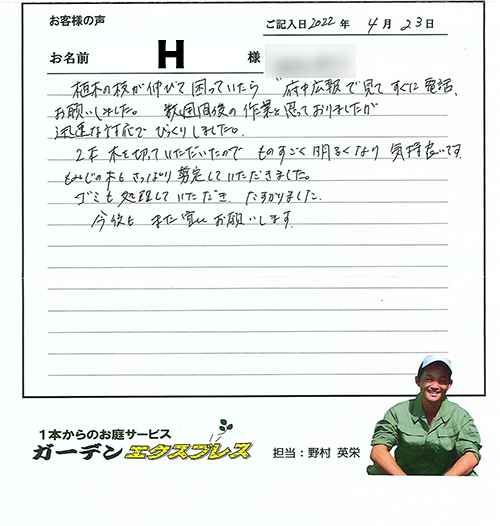 お客様の声
ご記入日2022年 4月23日
お名前 H 様
植木の枝が伸びて困っていたら "府中広報で見てすぐに電話、
お願いしました。数週間後の作業と思っておりましたが
迅速な対応でびっくりしました。
2本木を切っていただいたので ものすごく明るくなり 気持良いです
もみじの木もさっぱり剪定していただきました。
ゴミも処理していただき、たすかりました。
今後も また宜しくお願いします。
1本からのお庭サービス
ガーデンエクスプレス
担当：野村 英栄